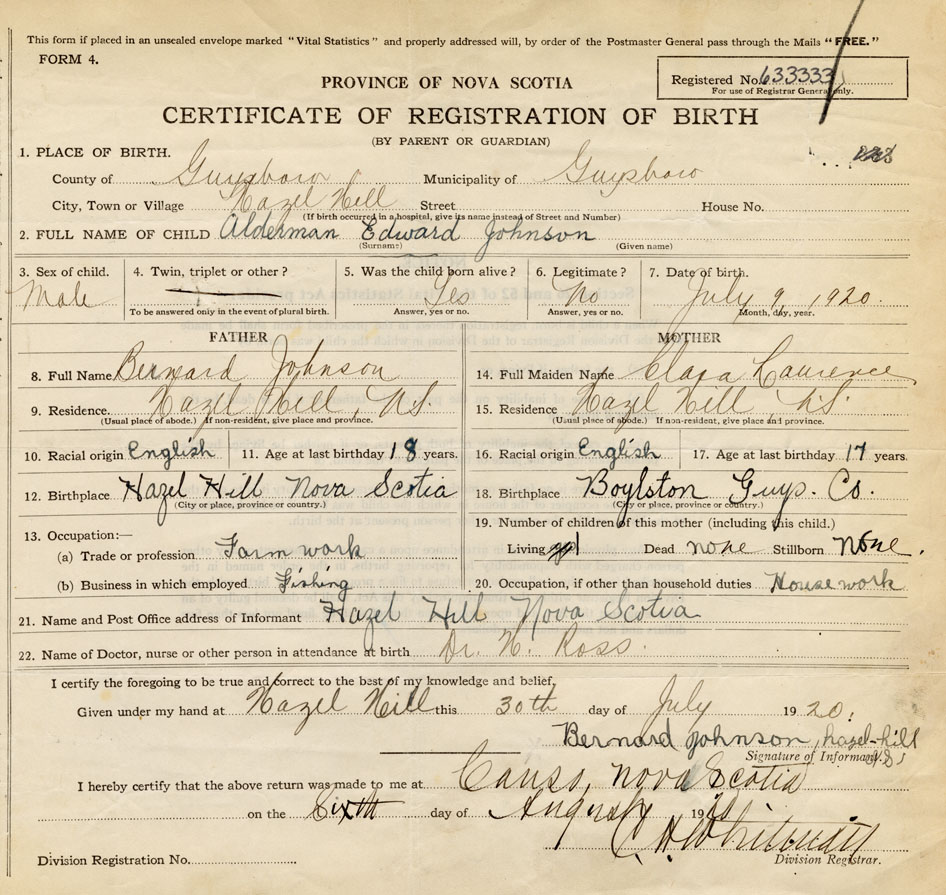 This form if placed in an unsealed envelope marked "Vital Statistics" and properly addressed will, by order of the Postmaster General pass through the Mails "FREE."
FORM 4.
Registered No. 633333
For use of Registrar General only.
PROVINCE OF NOVA SCOTIA
CERTIFICATE OF REGISTRATION OF BIRTH
(BY PARENT OR GUARDIAN)
1. PLACE OF BIRTH.
County of Guysboro Municipality of Guysboro
City, Town or Village Hazel Hill Street House No.
(If birth occurred in a hospital, give its name instead of Street and Number)
2. FULL NAME OF CHILD Alderman Edward Johnson
(Surname) (Given name)
3. Sex of child. 4. Twin, triplet or other? 5. Was the child born alive? 6. Legitimate? 7. Date of birth.
Male Yes No July 9, 1920.
To be answered only in the event of plural birth. Answer, yes or no. Answer, yes or no. Month, day, year.
FATHER MOTHER
8. Full Name Bernard Johnson 14. Full Maiden Name Clara Laurence
9. Residence. Hazel Hill, N.S. 15. Residence Hazel Hill N.S.
(Usual place of abode.) If non-resident, give place and province. (Usual place of abode.) If non-resident, give place and province.
10. Racial origin English 11. Age at last birthday 18 years. 16. Racial origin English 17. Age at last birthday 17 years.
12. Birthplace Hazel Hill Nova Scotia 18. Birthplace Boylston Guys. Co.
(City or place, province or country.) (City or place, province or country.)
13. Occupation:— 19. Number of children of this mother (including this child.)
(a) Trade or profession Farm work Living 1 Dead none Stillborn None.
(b) Business in which employed Fishing 20. Occupation, if other than household duties House work
21. Name and Post Office address of Informant Hazel Hill Nova Scotia
22. Name of Doctor, nurse or other person in attendance at birth Dr. N. Ross.
I certify the foregoing to be true and correct to the best of my knowledge and belief,
Given under my hand at Hazel Hill this 30th day of July 1920.
Bernard Johnson, hazel-hill N.S.
Signature of Informant.
I hereby certify that the above return was made to me at Canso, Nova Scotia
on the Sixth day of August 1920
Division Registration No. Division Registrar.